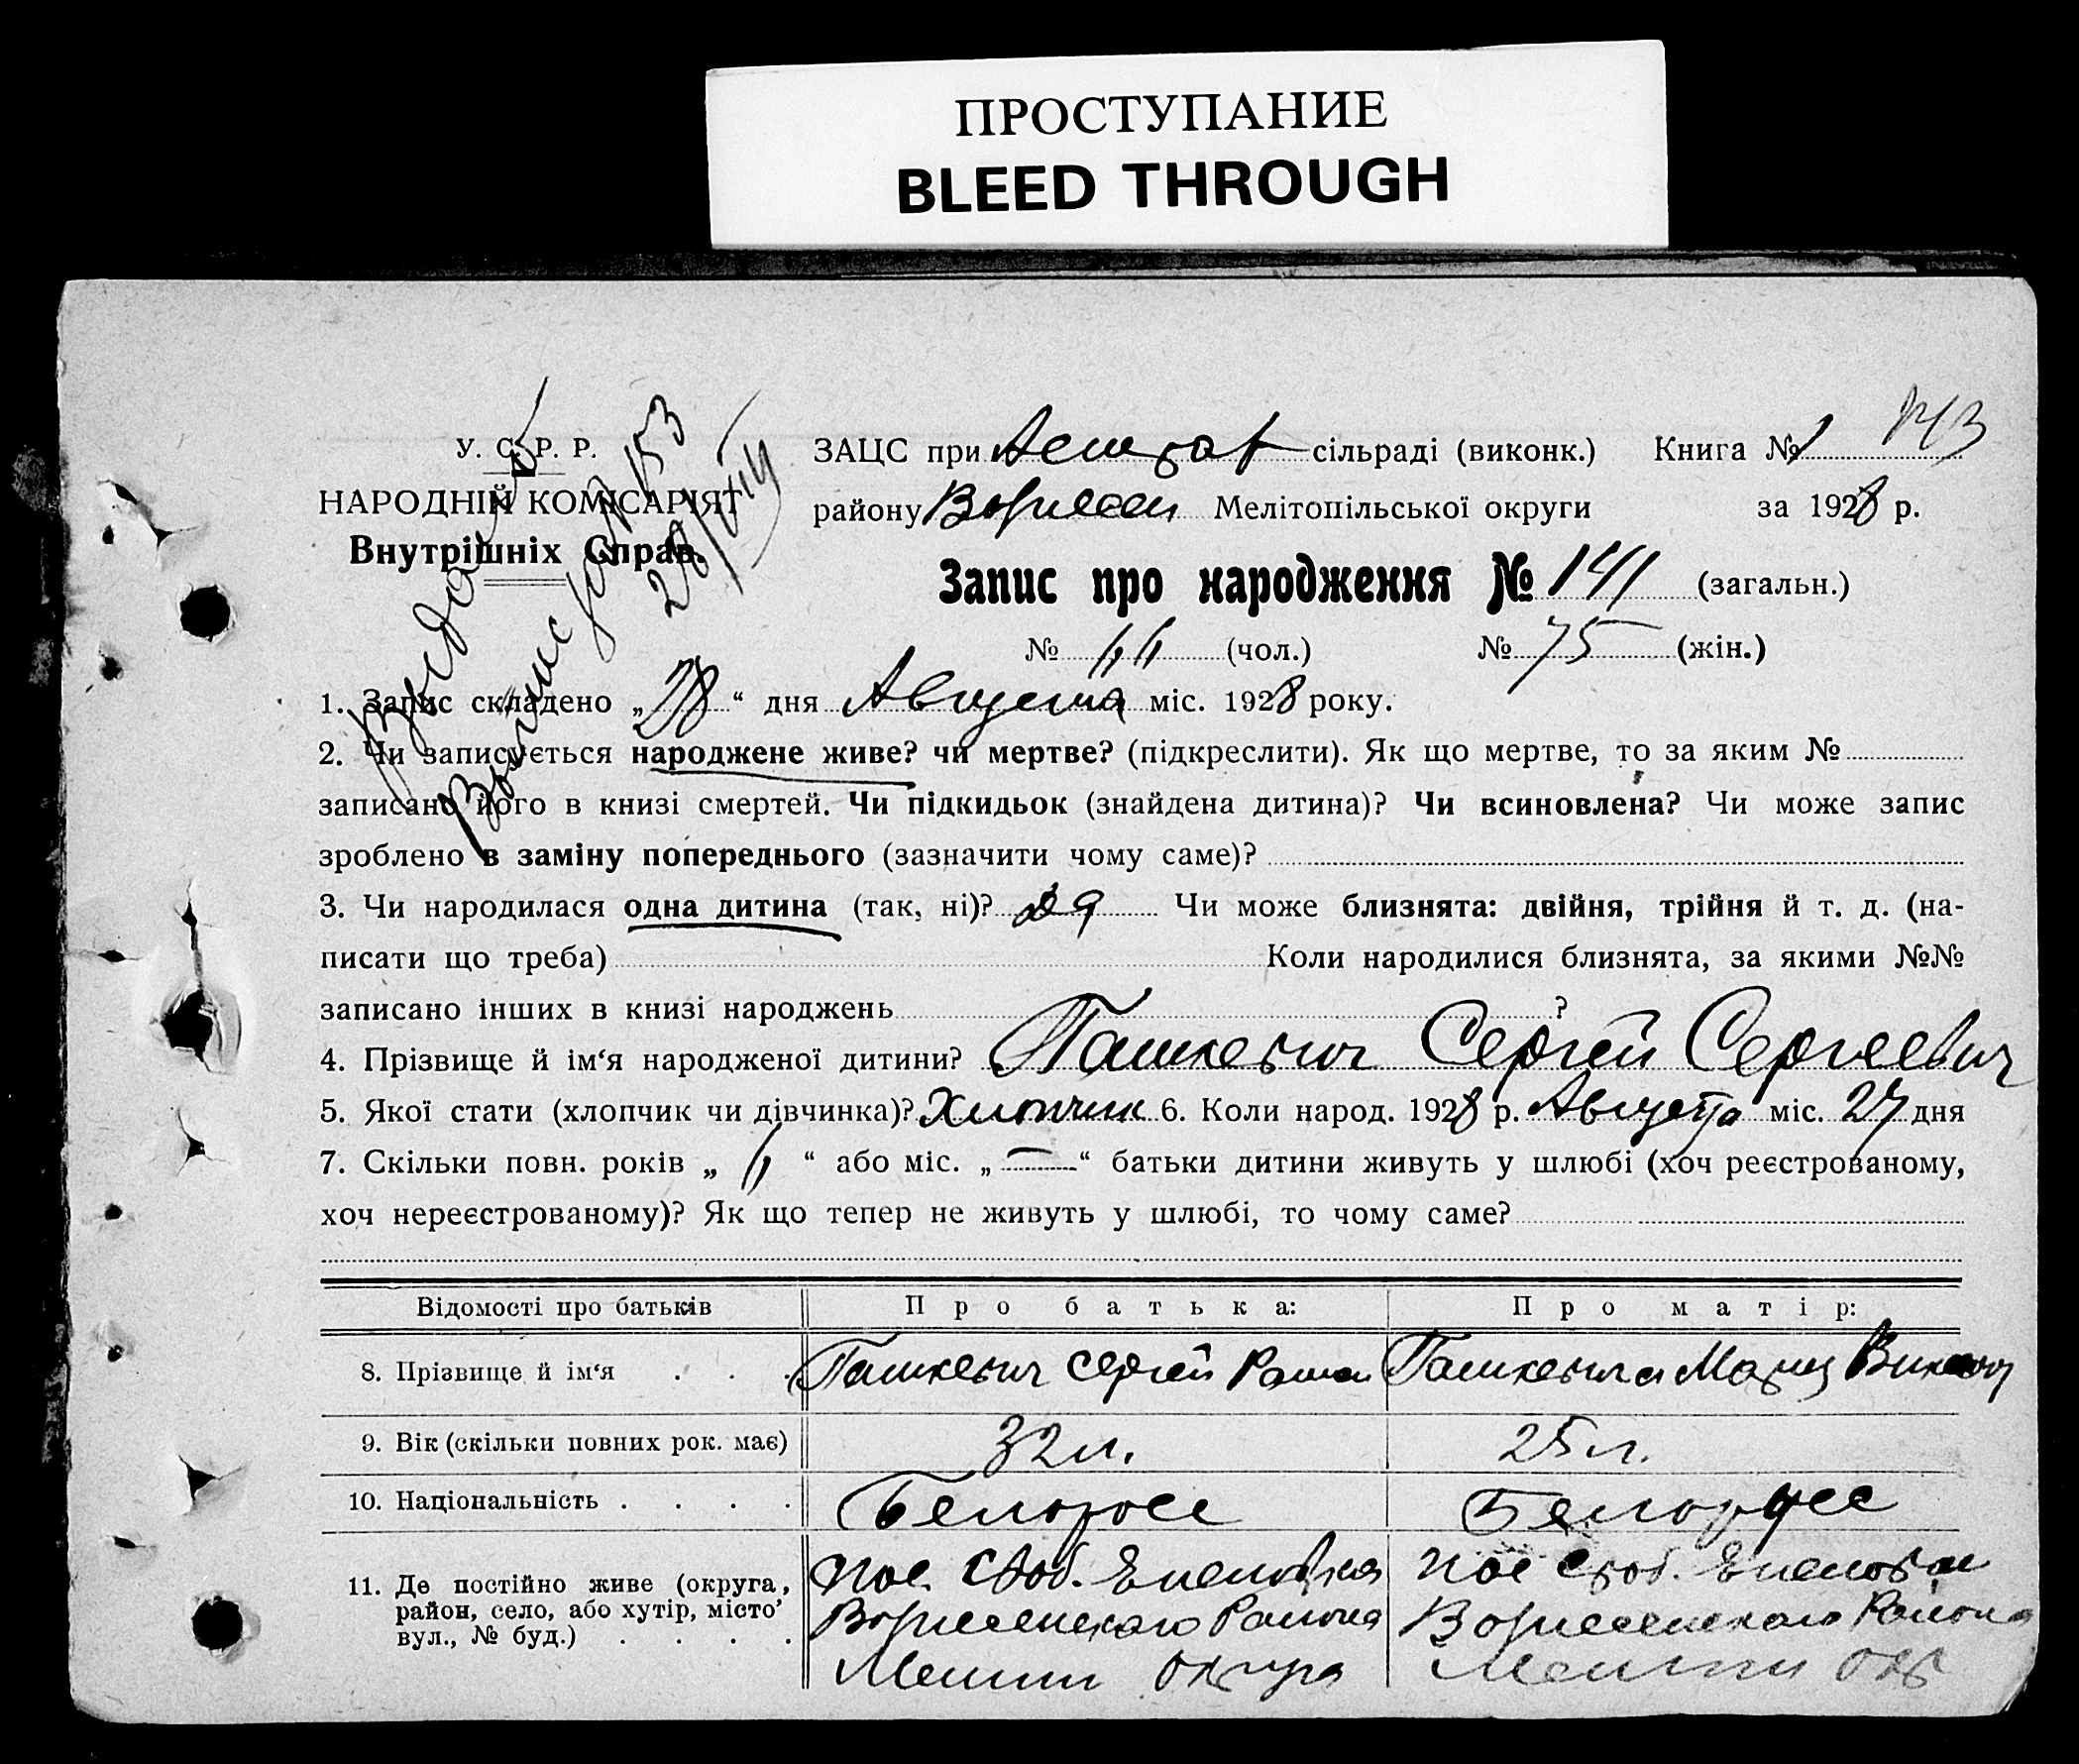 ПРОСТУПАНИЕ
BLEED THROUGH
У. С. Р. Р.
НАРОДНІЙ КОМІСАРІЯТ
Внутрішніх Справ.
ЗАЦС при сільраді (виконк.) Книга № 1
району Мелітопільської округи за 1928 р.
Запис про народження № 141 (загальн.)
№ (чол.) № 75 (жін.)
1. Запис складено „28“ дня Августа міс. 1928 року.
2. Чи записується народжене живе? чи мертве? (підкреслити). Як що мертве, то за яким №
записано його в книзі смертей. Чи підкидьок (знайдена дитина)? Чи всиновлена? Чи може запис
зроблено в заміну попереднього (зазначити чому саме)?
3. Чи народилася одна дитина (так, ні)? Чи може близнята: двійня, трійня й т. д. (на-
писати що треба) Коли народилися близнята, за якими №№
записано інших в книзі народжень ?
4. Прізвище й ім‘я народженої дитини? Пашкевич Сергей Сергеевич
5. Якої стати (хлопчик чи дівчинка)? Хлопчик 6. Коли народ. 1928 р. Августа міс. 27 дня
7. Скільки повн. років „ “ або міс. „—“ батьки дитини живуть у шлюбі (хоч реєстрованому,
хоч нереєстрованому)? Як що тепер не живуть у шлюбі, то чому саме?
Відомості про батьків Про батька: Про матір:
8. Прізвище й ім‘я . . . Пашкевич Сергей Пашкевич
9. Вік (скільки повних рок. має) 32 л. 25 л.
10. Національність . . . . Белоросс Белорусс
11. Де постійно живе (округа,
район, село, або хутір, місто’
вул., № буд.) . . . .
пос. Своб.
Района
Мелит округа
пос Своб.
Района
Мелит окр